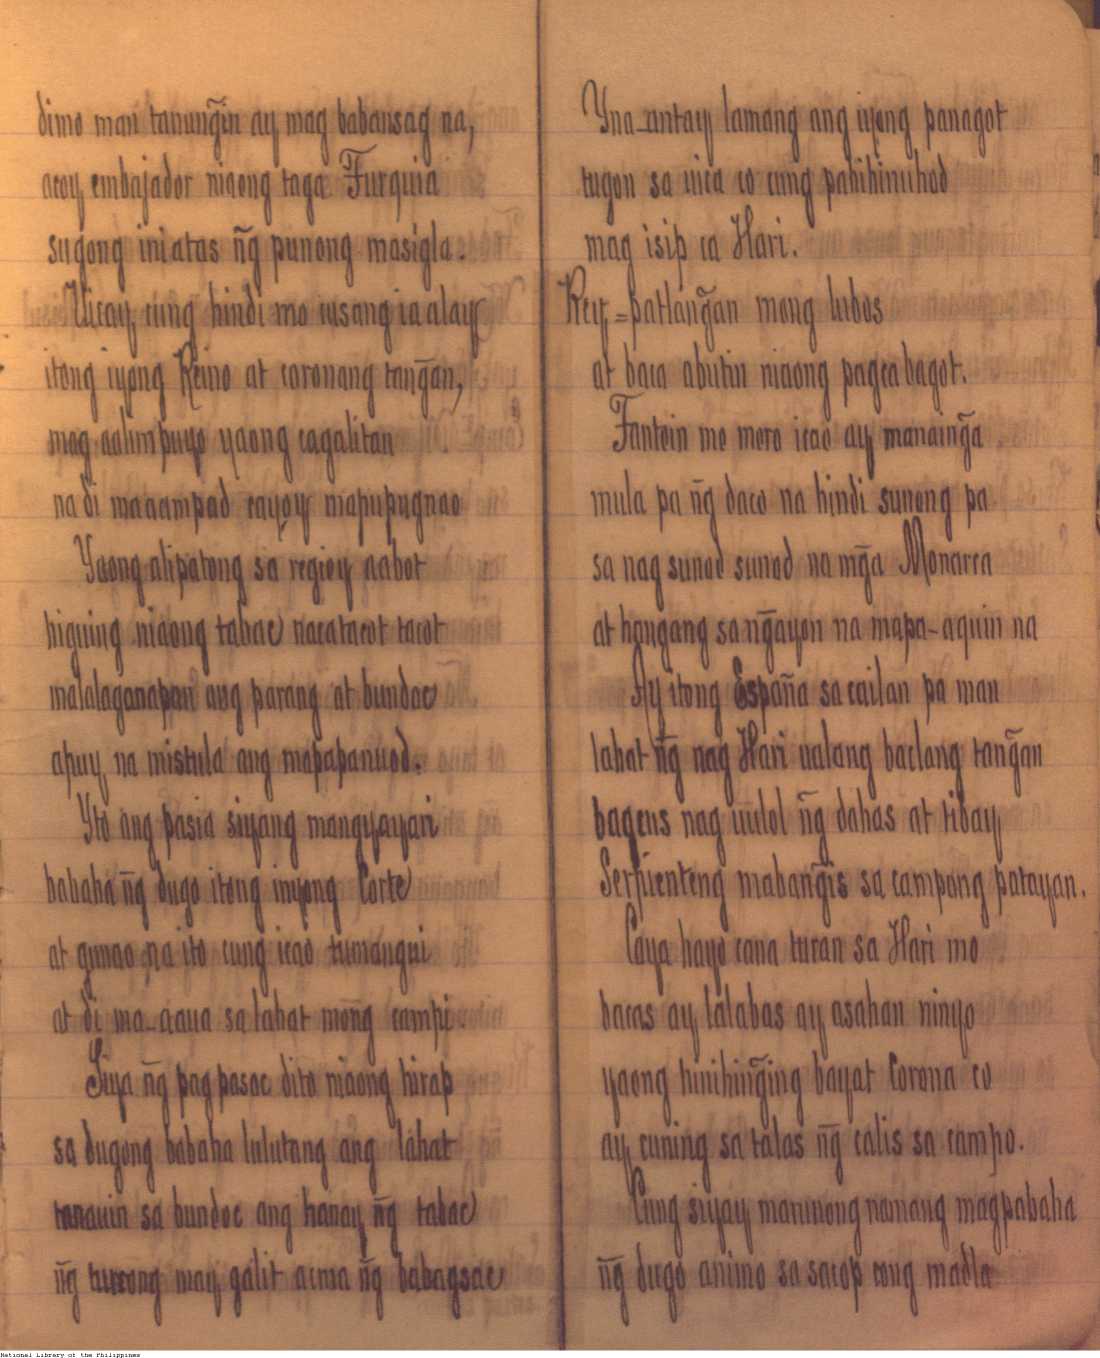 dimo man tanungin ay mag babansag na,
acoy embajador niaong taga Turquia
sugong iniatas ñg punong masigla.
Uicay, cung hindi mo iusang ia alay
itong iyong Reino at coronang tang̃an,
mag aalimpuyo yaong cagalitan
na di maaampad cayoy mapupugnao
Yaong alipatong sa regioy aabot
higuing niaong tabac nacatacot tacot
malalaganapan ang parang at bundoc
apuy na mistula ang mapapanuod.
Yto ang pasia siyang mangyayari
babaha ñg dugo itong inyong Corte
at gunao na ito cung icao tumangui
at di ma-aaua sa lahat mong campi
Siya ñg pag pasac dito niaong hirap
sa dugong babaha lulutang ang lahat
tanauin sa bundoc ang hanay ñg tabac
ñg turcong may galit acma ñg babagsac
Yna-antay lamang ang iyong panagot
tugon sa uica co cung pahihinuhod
mag isip ca Hari.
Rey = patlang̃an mong lubos
at baca abutin niaong pagcabagot.
Tantoin mo moro icao ay manaing̃a
mula pa ñg daco na hindi sunong pa
sa nag sunod sunod na mg̃a Monarca
at hangang sa ng̃ayon na mapa-aquin na
Ay itong España sa cailan pa man
lahat ñg nag Hari ualang baclang tang̃an
bagcus nag uulol ñg dahas at tibay
Serpienteng mabang̃is sa campong patayan.
Caya hayo cana turan sa Hari mo
bacas ay lalabas ay asahan ninyo
yaong hinihing̃ing bayat Corona co
ay cuning sa talas ñg calis sa campo.
Cung siyay marunong namang magpabaha
ñg dugo animo sa sacop cong madla
National Library of the Philippines